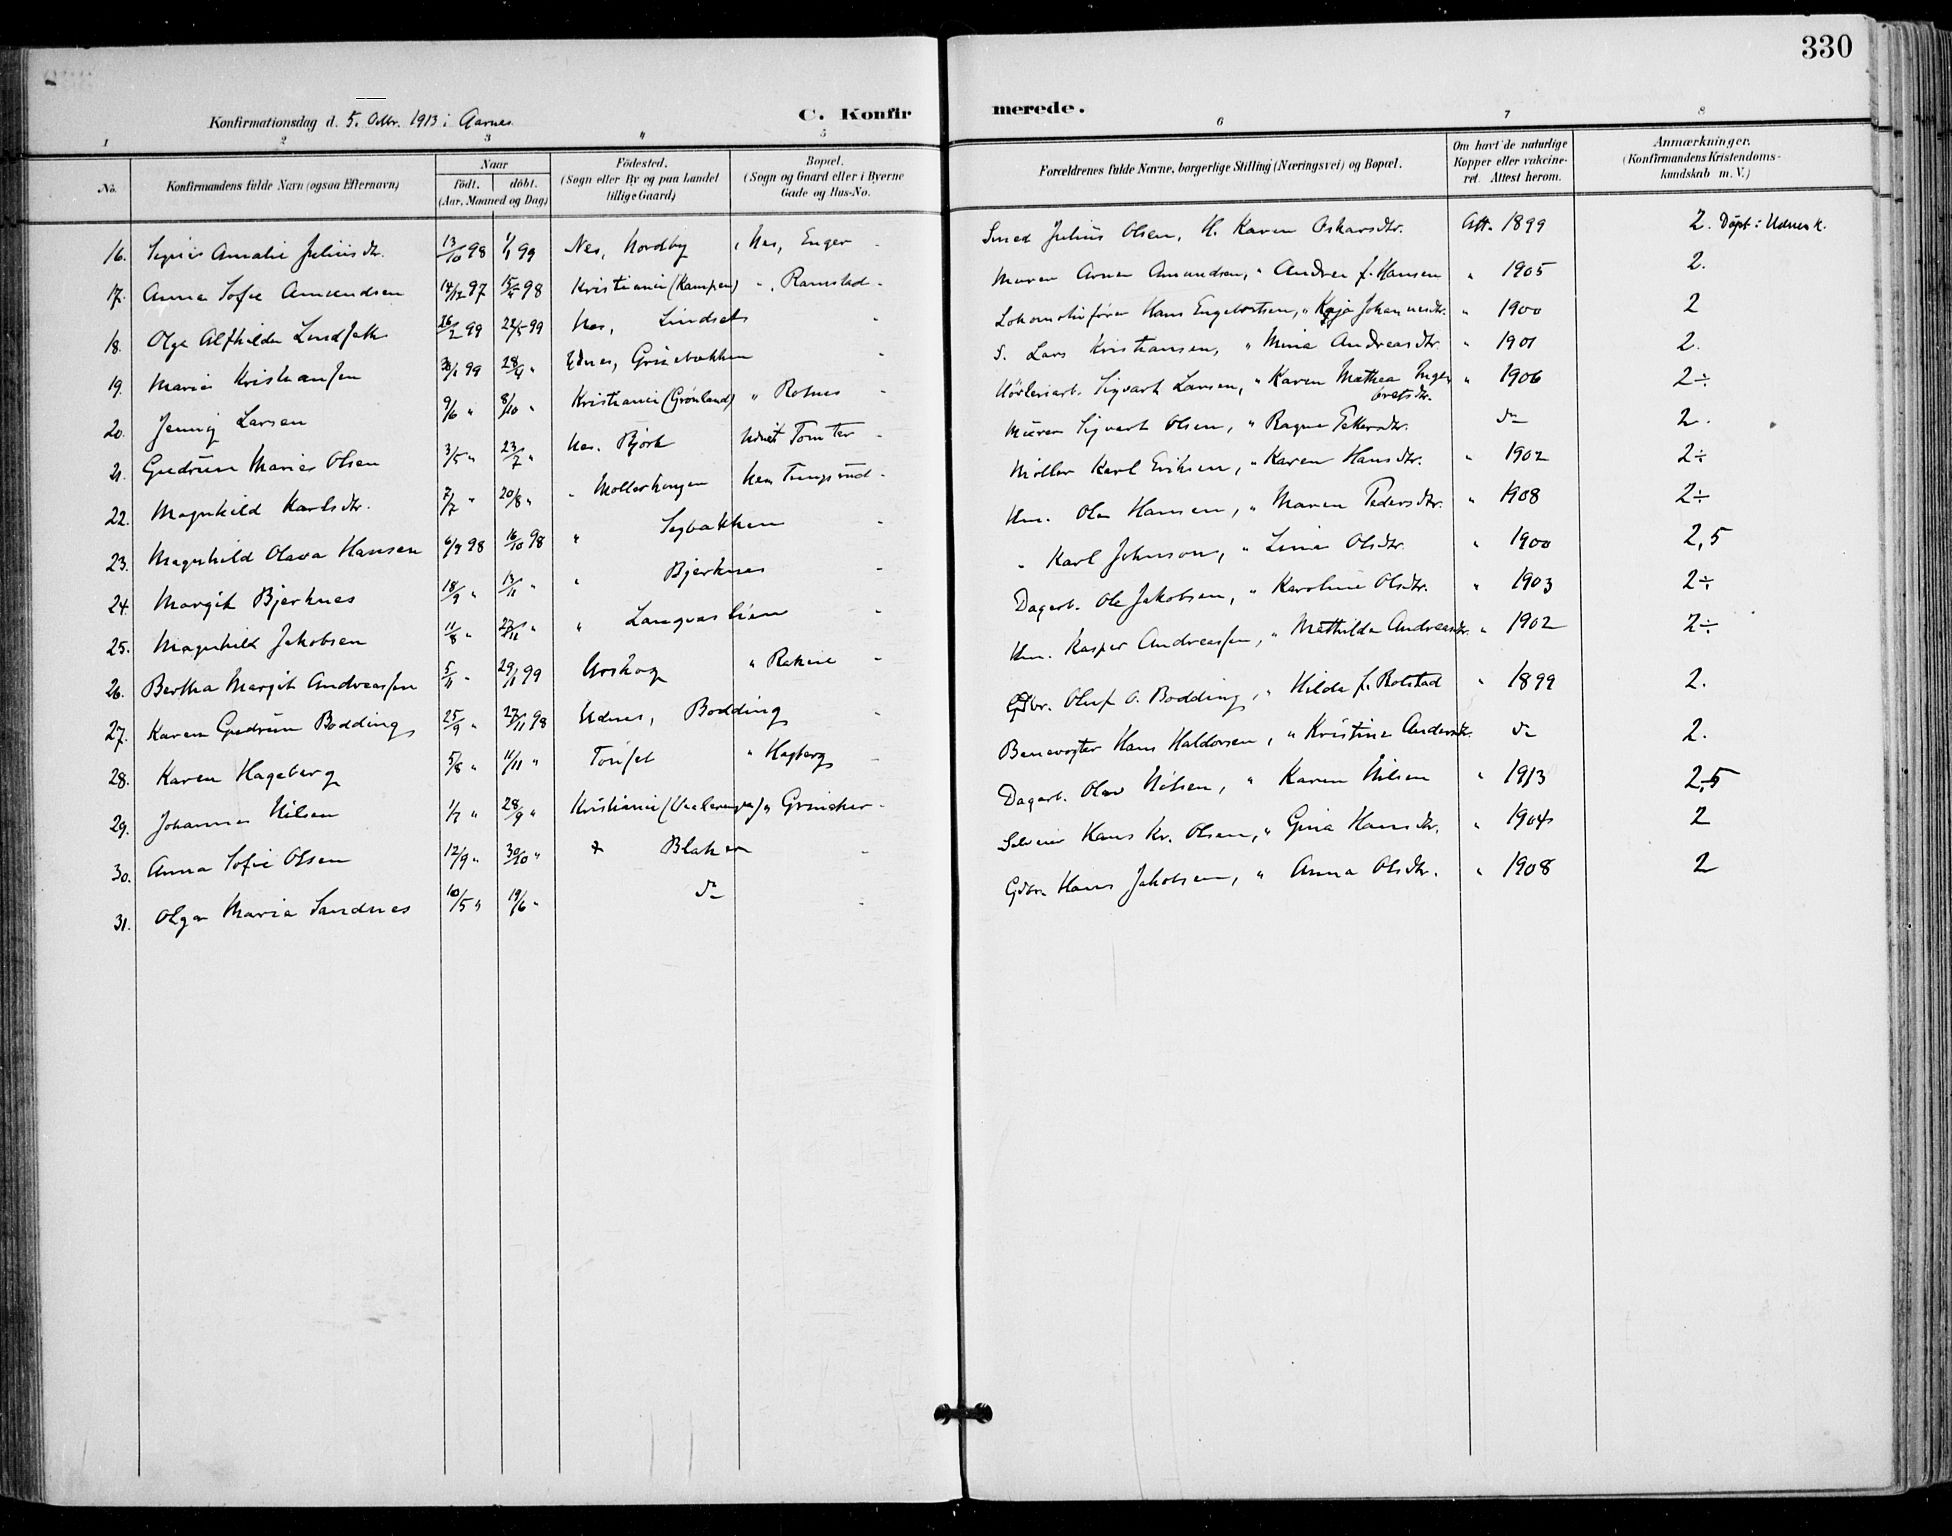 330
Konfirmationsdag d. 5. Octbr. 1913 i Aarnes.
C. Konfirmerede.
1 2 3 " 5 6 7 8
No. Konfirmandens fulde Navn (ogsaa Efternavn) Naar født. døbt. (Aar, Maaned og Dag) Fødested. (Sogn eller By og paa Landet tillige Gaard) Bopæl. (Sogn og Gaard eller i Byerne Gade og Hus-No. Forældrenes fulde Navne, borgerlige Stilling (Næringsvei) og Bopæl. Om havt de naturlige Kopper eller vakcineret. Attest herom. Anmærkninger. (Konfirmandens Kristendomskundskab m. V.)
16. Amalie Juliusdtr. 13/10 98 1/1 99 Nes, Nordby Nes, Enger Smed Julius Olsen, H. Karen Oskarsdtr. Att. 1899 2. Døpt i Udnes k.
17. Anna Sofie Amundsen 14/12 97 15/4 98 Kristiania (Kampen) ", Ramstad Murer Arne Amundsen, " Andrea f. Hansen " 1905 2.
18. Olga Alfhilda 26/2 99 22/5 99 Nes, Lindset Lokomotivfører Hans Engebretsen, " Kaja Johannesdtr. " 1900 2
19. Marie Kristiansen 30/1 99 28/4 " Udnes, Grinebakken S. Lars Kristiansen, " Mina Andreasdtr. " 1901 2.
20. Jenny Larsen 9/6 " 8/10 " Kristiania (Grønland) " Rotnes Høvleriarb. Sigvart Larsen, " Karen Mathea Ingebretsdtr. " 1906 2÷
21. Gudrun Marie Olsen 3/5 " 23/7 " Nes. Bjørk Udnes Tomter Murer Sigvart Olsen, " Ragna do 2.
22. Magnhild Karlsdtr. 7/7 " 20/8 " " Møllerhaugen Nes Møller Karl Eriksen, " Karen Hansdtr. " 1902 2÷
23. Magnhild Olava Hansen 6/9 98 16/10 98 " Hm. Ola Hansen, " Maren Pedersdtr. " 1908 2÷
24. Margit Bjerknes 18/9 " 13/11 " " Bjerknes " Karl Johnson, " Lina Olsdtr. " 1900 2,5
25. Magnhild Jakobsen 11/8 " 27/11 " " Langvaslien Dagarb. Ole Jakobsen, " Karoline Olsdtr. " 1903 2÷
26. Bertha Margit Andreassen 5/11 " 29/1 99 Urskog " Hm. Kasper Andreassen, " Mathilda Andreasdtr. " 1902 2÷
27. Karen Gudrun Bodding 25/9 " 27/11 98 Udnes, Bodding Gbr. Oluf O. Bodding, " Hilda f. Rolstad " 1899 2.
28. Karen Hageberg 5/8 " 11/11 " " Hagberg Banevogter Hans Haldorsen, " Kristine Andersdtr. do 2.
29. Johanna Nilsen 1/7 " 28/9 " Kristiania (Vaalerengen) " Dagarb. Olav Nilsen, " Karen Nilsen " 1913 2,5
30. Anna Sofie Olsen 12/9 " 30/10 " Blaker Selveier Hans Kr. Olsen, " Gina Hansdtr. " 1904 2
31. Olga Maria Sandnes 10/5 " 19/6 " do Gbr. Hans Jakobsen, " Anna Olsdtr. " 1908 2